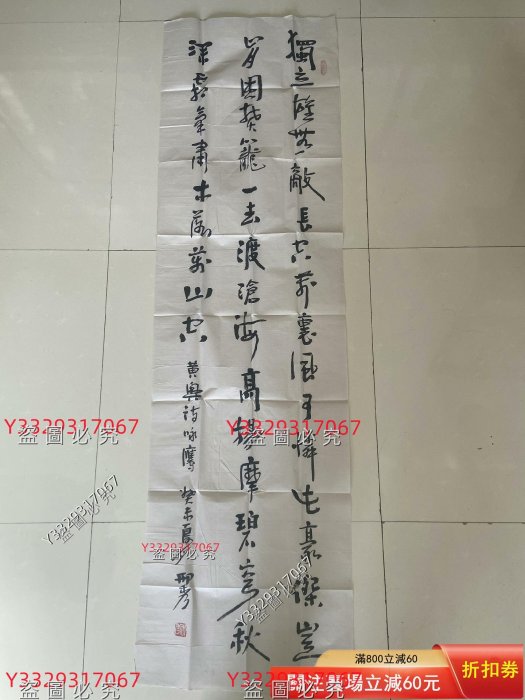 獨立雄无敵長空萬裏風可憐此豪傑豈
肯困樊籠一去渡滄海高揚摩碧穹秋
深霜氣肅木落萬山空
黄興詩咏鷹 癸未夏
Y3329317067
盜圖必究
Y3329317067
盜圖必究
Y3329317067
盜圖必究
Y3329317067
盜圖必究
Y3329317067
盜圖必究
Y3329317067
盜圖必究
Y3329317067
Y3329317067
滿800立減60
關注賣場立減60元
折扣券